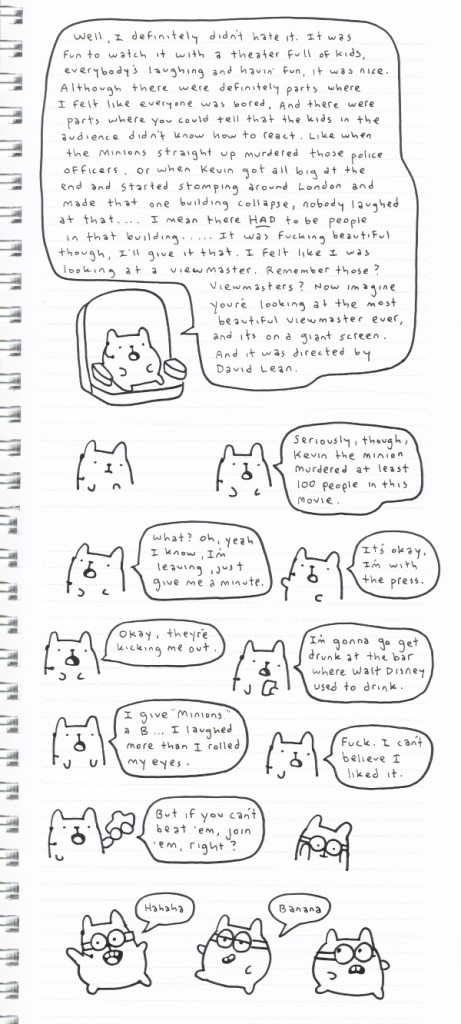 Well, I definitely didn't hate it. It was
fun to watch it with a theater full of kids,
everybody's laughing and havin' fun, it was nice.
Although there were definitely parts where
I felt like everyone was bored. And there were
parts where you could tell that the kids in the
audience didn't know how to react. Like when
the Minions straight up murdered those police
officers. Or when Kevin got all big at the
end and started stomping around London and
made that one building collapse, nobody laughed
at that.... I mean there HAD to be people
in that building..... It was fucking beautiful
though, I'll give it that. I felt like I was
looking at a viewmaster. Remember those?
Viewmasters? Now imagine
you're looking at the most
beautiful viewmaster ever,
and its on a giant screen.
And it was directed by
David Lean.
Seriously, though,
Kevin the minion
murdered at least
100 people in this
movie.
What? Oh, yeah
I know, I'm
leaving, just
give me a minute.
It's okay.
I'm with
the press.
Okay, they're
kicking me out.
I'm gonna go get
drunk at the bar
where Walt Disney
used to drink.
I give "Minions"
a B... I laughed
more than I rolled
my eyes.
Fuck. I can't
believe I
liked it.
But if you can't
beat 'em, join
'em, right?
Hahaha
Banana